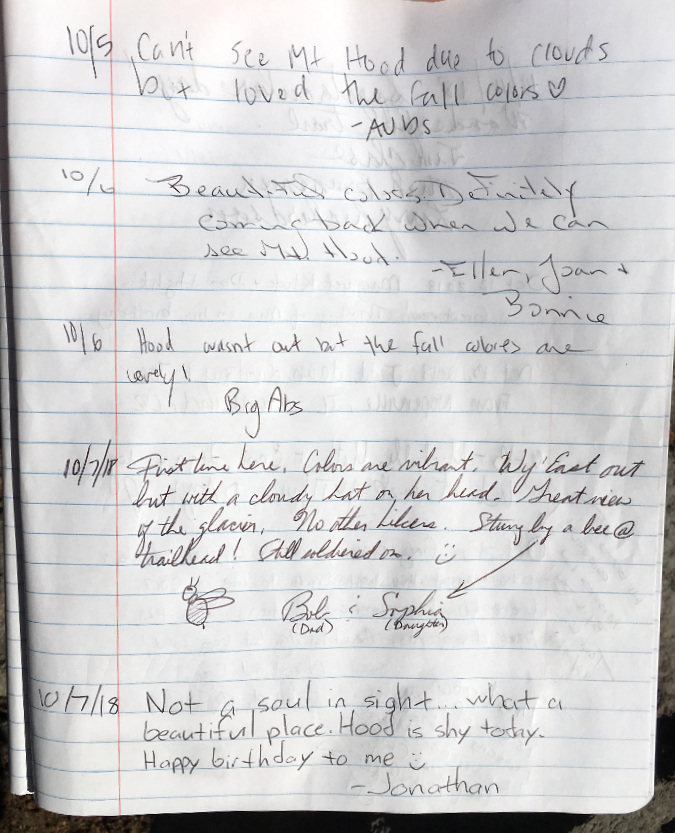 10/5 Can't see Mt Hood due to clouds
but loved the fall colors ♡
-AUBS
10/6 Beautiful colors. Definitely
coming back when we can
see Mt. Hood.
-Ellen, Joan +
Bonnie
10/6 Hood wasnt out but the fall colores are
lovely!
Big Abs
10/7/18 First time here. Colors are vibrant. Wy'East out
but with a cloudy hat on her head. Great view
of the glacier. No other hikers. Stung by a bee @
trailhead! Still soldiered on. :)
Bob & Sophia
(Dad) (Daughter)
10/7/18 Not a soul in sight... what a
beautiful place. Hood is shy today.
Happy birthday to me :)
-Jonathan